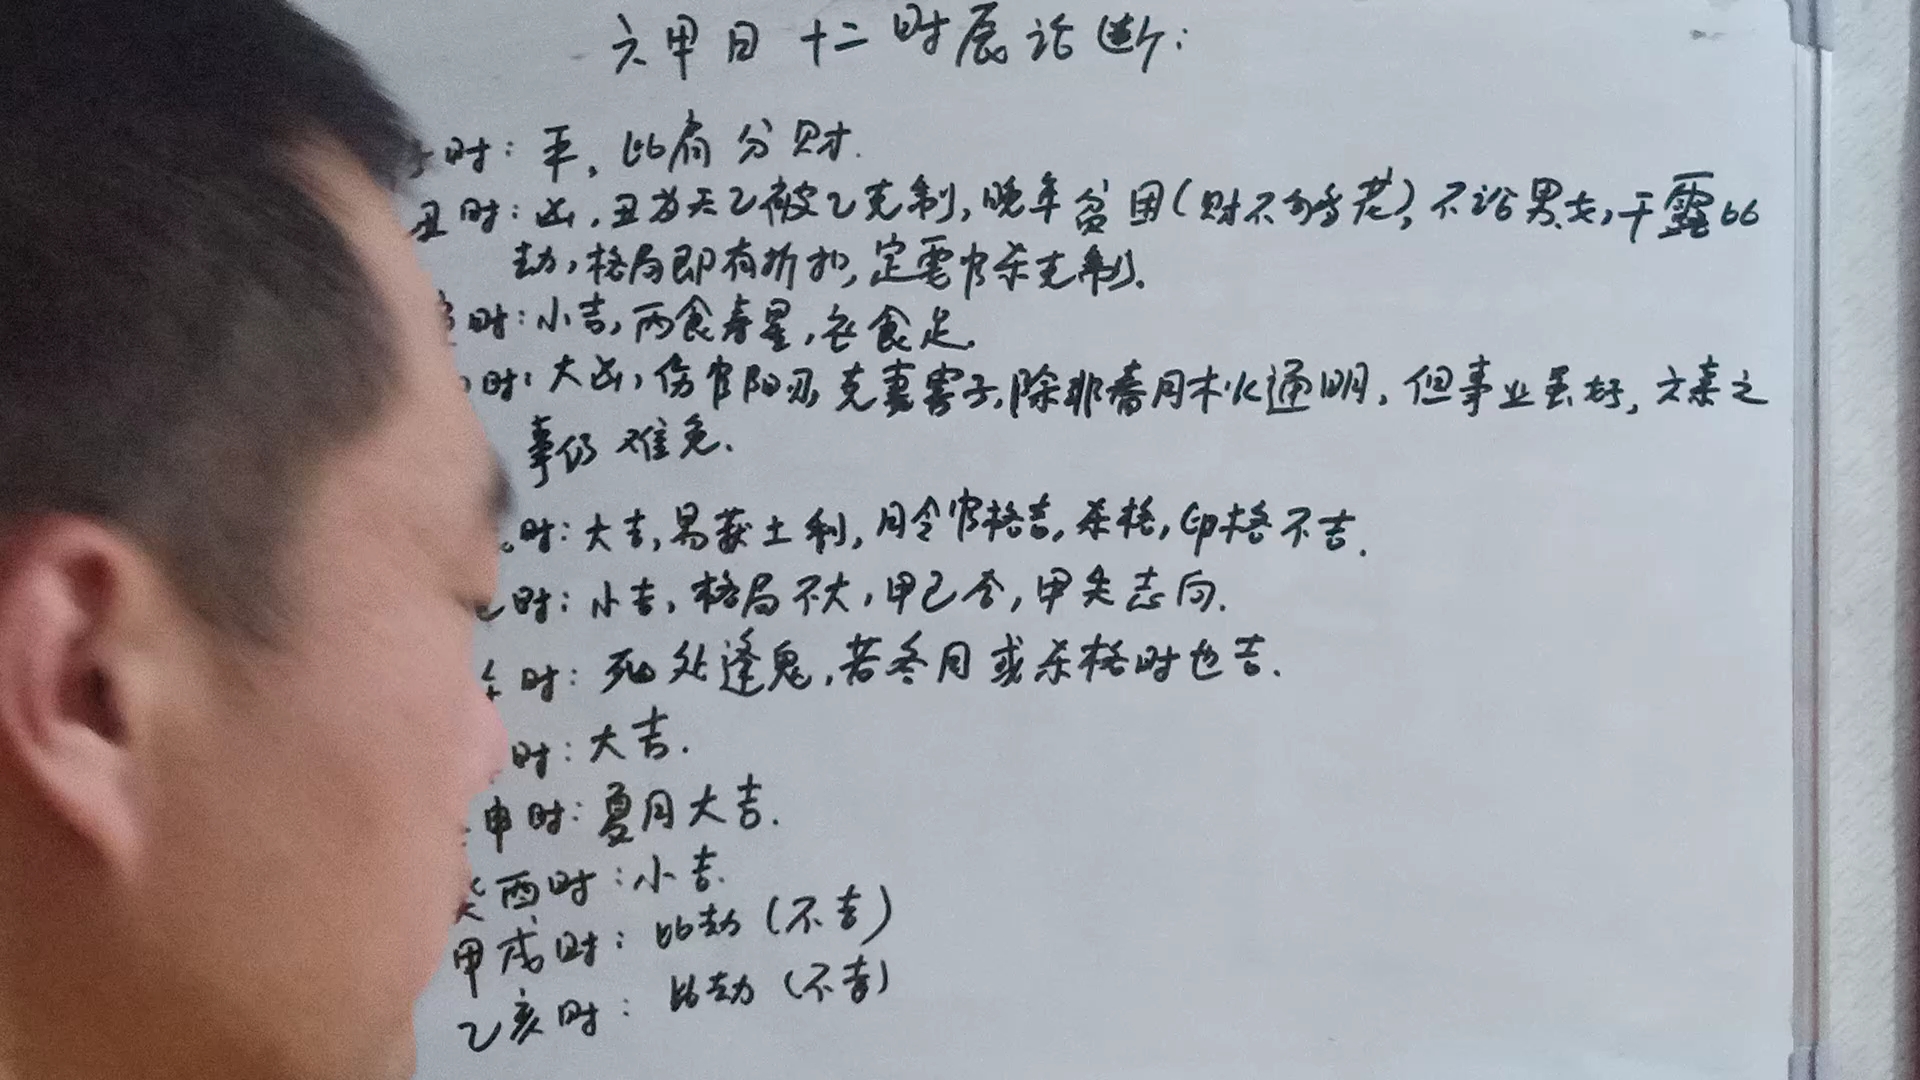 六甲日十二时辰论断:
时: 平, 比肩分财.
丑时: 凶, 丑为天乙被乙克制, 晚年贫困(财不旬老), 不论男女, 干露比
劫, 格局即有折扣, 定要官杀克制.
时: 小吉, 丙食寿星, 衣食足.
时: 大凶, 伤官阳刃, 克妻害子, 除非春月木火通明, 但事业虽好, 六亲之
事仍难免.
时: 大吉, 易获土利, 月令官格吉, 杀格, 印格不吉.
时: 小吉, 格局不大, 甲己合, 甲失志向.
午时: 死处逢鬼, 若冬月或杀格时也吉.
时: 大吉.
申时: 夏月大吉.
癸酉时: 小吉.
甲戌时: 比劫 (不吉)
乙亥时: 比劫 (不吉)